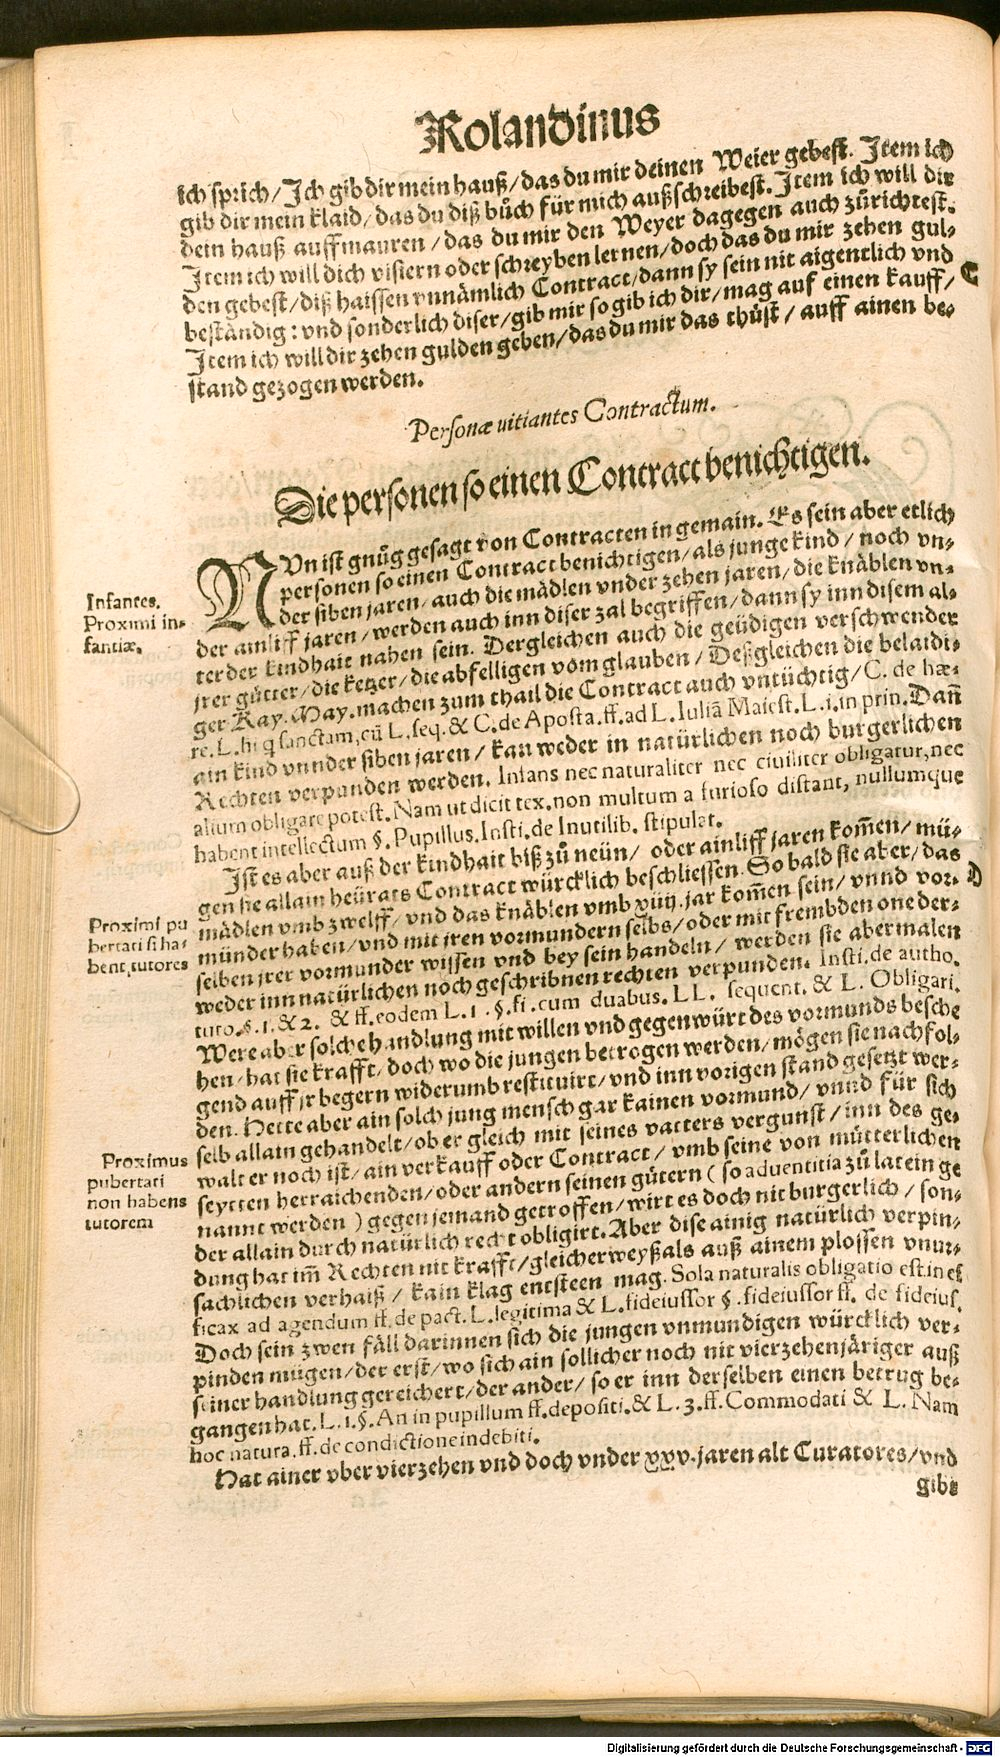 Rolandinus
ich sprich/ Ich gib dir mein hauß/ das du mir deinen Weier gebest. Item ich
gib dir mein klaid/ das du diß bůch für mich außschreibest. Item ich will dir
dein hauß auffmauren/ das du mir den Weyer dagegen auch zůrichtest.
Item ich will dich visiern oder schreyben lernen/ doch das du mir zehen gul-
den gebest/ diß haissen vnnämlich Contract/ dann sy sein nit aigentlich vnd
beständig: vnd sonderlich diser/ gib mir so gib ich dir/ mag auf einen kauff/
C
Item ich will dir zehen gulden geben/ das du mir das thůst/ auff ainen be-
stand gezogen werden.
Personæ uitiantes Contractum.
Die personen so einen Contract benichtigen.
NVn ist gnůg gesagt von Contracten in gemain. Es sein aber etlich
personen so einen Contract benichtigen/ als junge kind/ noch vn-
der siben jaren/ auch die mädlen vnder zehen jaren/ die knäblen vn-
Infantes.
Proximi in-
fantiæ.
der ainliff jaren/ werden auch inn diser zal begriffen/ dann sy inn disem al-
ter der kindhait nahen sein. Dergleichen auch die geüdigen verschwender
jrer gütter/ die ketzer/ die abfelligen vom glauben/ Deßgleichen die belaidi-
ger Kay. May. machen zum thail die Contract auch vntüchtig/ C. de hæ-
re. L. hi q̃ sanctam, cũ L. seq. & C. de Aposta. ff. ad L. Iuliã Maiest. L. i. in prin. Dañ
ain kind vnnder siben jaren/ kan weder in natürlichen noch burgerlichen
Rechten verpunden werden. Infans nec naturaliter nec ciuiliter obligatur, nec
alium obligare potest. Nam ut dicit tex. non multum a furioso distant, nullumque
habent intellectum §. Pupillus. Insti. de Inutilib. stipulat.
Ist es aber auß der kindhait biß zů neün/ oder ainliff jaren kom̃en/ mü-
gen sie allain heürats Contract würcklich beschliessen. So bald sie aber/ das
D
mädlen vmb zwelff/ vnd das knäblen vmb xiiij. jar kom̃en sein/ vnnd vor-
Proximi pu
bertati si ha-
bent tutores
münder haben/ vnd mit jren vormundern selbs/ oder mit frembden one der-
selben jrer vormunder wissen vnd bey sein handeln/ werden sie abermalen
weder inn natürlichen noch geschribnen rechten verpunden. Insti. de autho.
tuto. §. 1. & 2. & ff. eodem L. 1. §. fi. cum duabus. LL. sequent. & L. Obligari.
Were aber solche handlung mit willen vnd gegenwürt des vormunds besche
hen/ hat sie krafft/ doch wo die jungen betrogen werden/ mögen sie nachfol-
gend auff jr begern widerumb restituirt/ vnd inn vorigen stand gesetzt wer-
den. Hette aber ain solch jung mensch gar kainen vormund/ vnnd für sich
selb allain gehandelt/ ob er gleich mit seines vatters vergunst/ inn des ge-
Proximus
pubertati
non habens
tutorem
walt er noch ist/ ain verkauff oder Contract/ vmb seine von mütterlichen
seytten herraichenden/ oder andern seinen gütern (so aduentitia zů latein ge
nannt werden) gegen jemand getroffen/ wirt es doch nit burgerlich/ son-
der allain durch natürlich recht obligirt. Aber dise ainig natürlich verpin-
dung hat im̃ Rechten nit krafft/ gleicherweyß als auß ainem plossen vnur-
sachlichen verhaiß/ kain klag entsteen mag. Sola naturalis obligatio est inef
ficax ad agendum ff. de pact. L. legitima & L. fideiussor §. fideiussor ff. de fideius.
Doch sein zwen fäll darinnen sich die jungen vnmundigen würcklich ver-
pinden mügen/ der erst/ wo sich ain sollicher noch nit vierzehenjäriger auß
seiner handlung gereichert/ der ander/ so er inn derselben einen betrug be-
gangen hat. L. 1. §. An in pupillum ff. depositi. & L. 3. ff. Commodati & L. Nam
hoc natura. ff. de condictione indebiti.
Hat ainer vber vierzehen vnd doch vnder xxv. jaren alt Curatores/ vnd
gibt
Digitalisierung gefördert durch die Deutsche Forschungsgemeinschaft - DFG